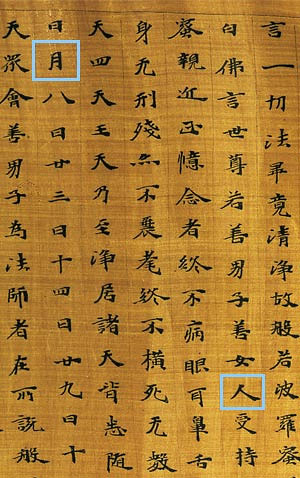 言一切法畢竟清淨故般若波羅蜜
白佛言世尊若善男子善女人受持
蜜親近正憶念者終不病眼耳鼻舌
身无刑殘亦不衰耄終不橫死无數
天四天王天乃至淨居諸天皆悉随
日月八日廿三日十四日廿九日十
天眾會善男子為法師者在所說般